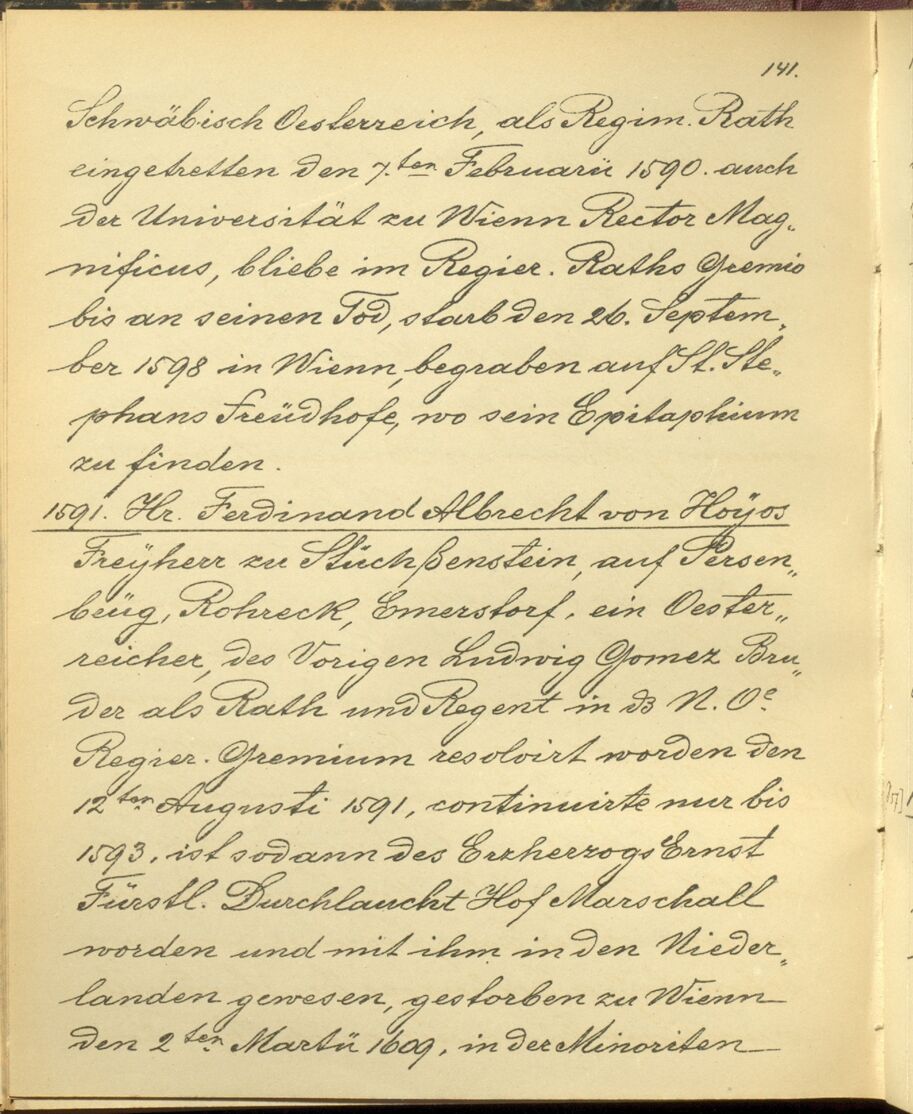 141.
Schwäbisch Oesterreich, als Regim. Rath
eingetretten den 7.ten Februarii 1590. auch
der Universität zu Wienn Rector Mag„
nificus, bliebe im Regier. Raths Gremio
bis an seinen Tod, starb den 26. Septem„
ber 1598 in Wienn, begraben auf St. Ste„
phans Freüdhofe, wo sein Epitaphium
zu finden.
1591. Hr. Ferdinand Albrecht von Hoÿos
Freÿherr zu Stüchßenstein, auf Persen„
beüg, Rohreck, Emerstorf, ein Oester„
reicher, des Vorigen Ludwig Gomez Bru„
der als Rath und Regent in N. Oe.
Regier. Gremium resolvirt worden den
12ten Augusti 1591, continuirte nur bis
1593, ist sodann des Erzherzogs Ernst
Fürstl. Durchlaucht Hof Marschall
worden und mit ihm in den Nieder„
landen gewesen, gestorben zu Wienn
den 2ten Martii 1609, in der Minoriten